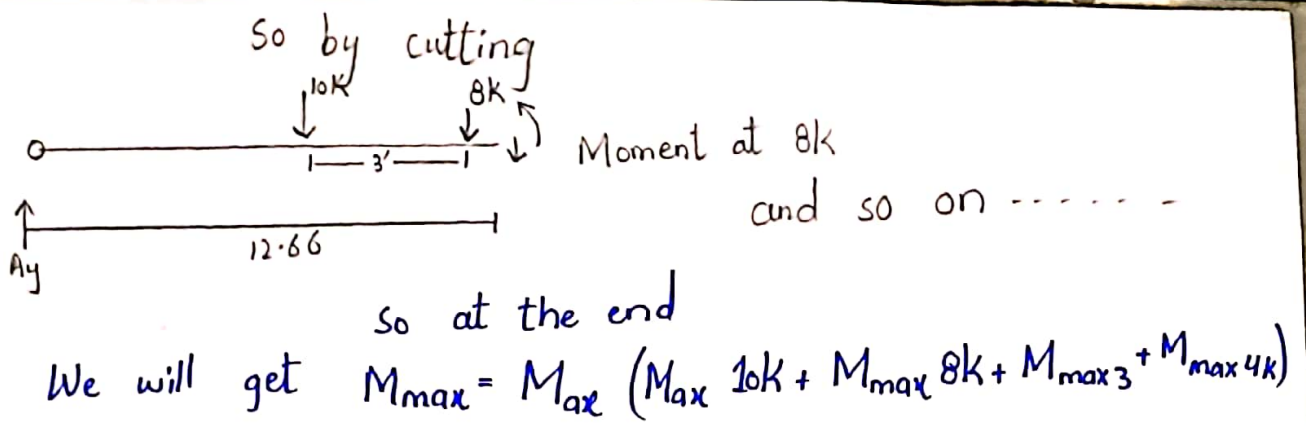 So by cutting
10K 8K
3' Moment at 8k
and so on ------
12.66
Ay
So at the end
We will get Mmax = Max (Max 10K + Mmax 8K + Mmax3 + Mmax4K)